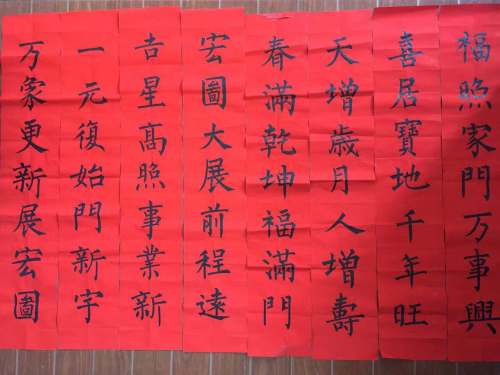 福照家門万事興
喜居寶地千年旺
天增歲月人增壽
春滿乾坤福滿門
宏圖大展前程遠
吉星高照事業新
一元復始門新宇
万象更新展宏圖